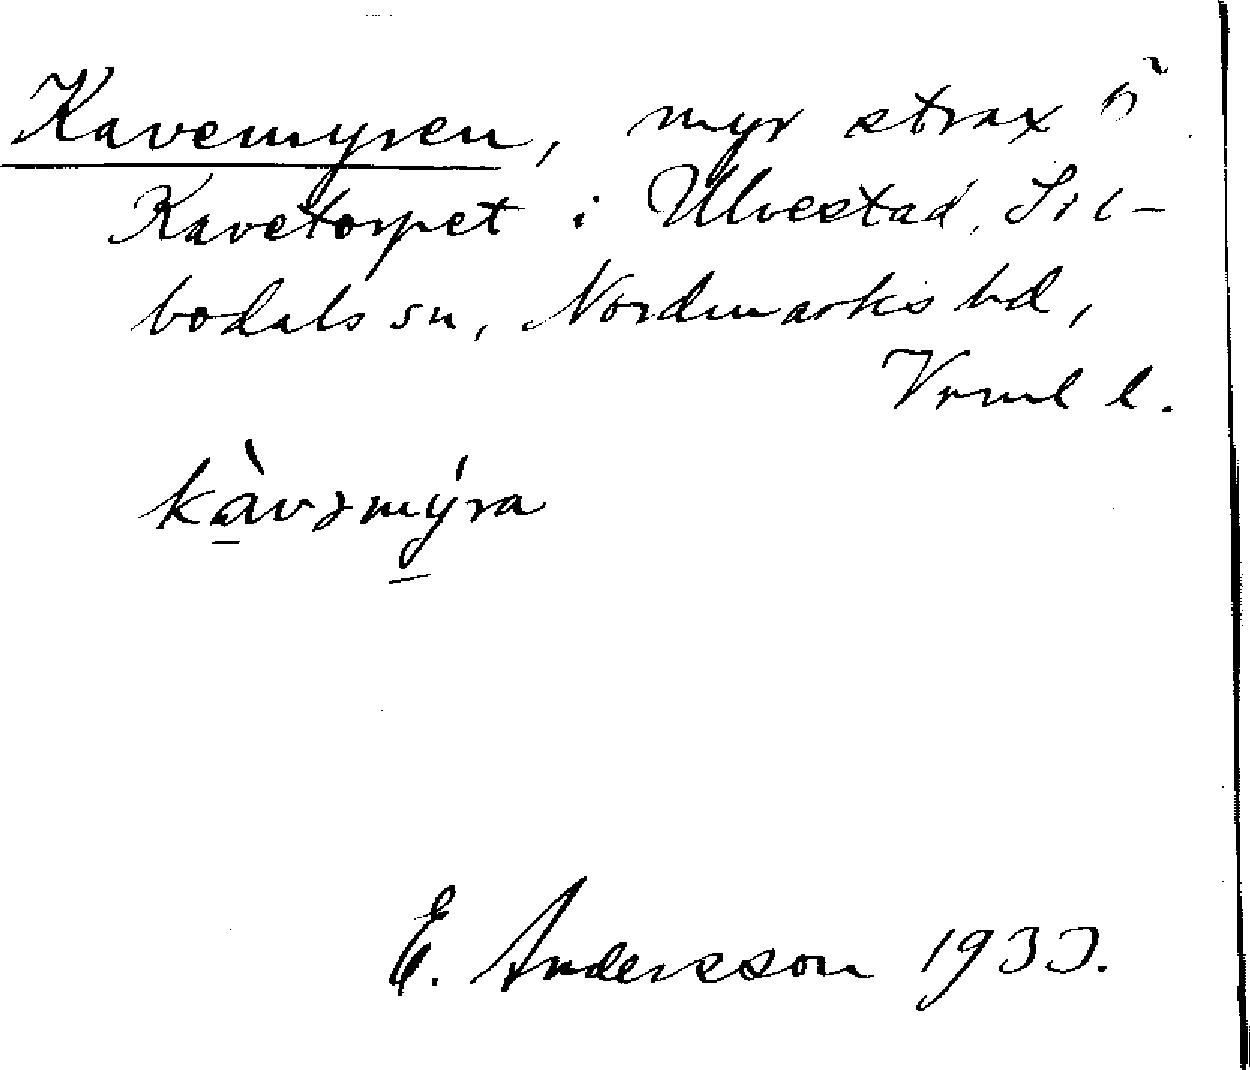 Kavemyren, myr strax ö
Kavetorpet i Ulvestad, Sil-
bodals sn, Nordmarks hd,
Vrml l.
kàvəmýra
E. Andersson 1933.